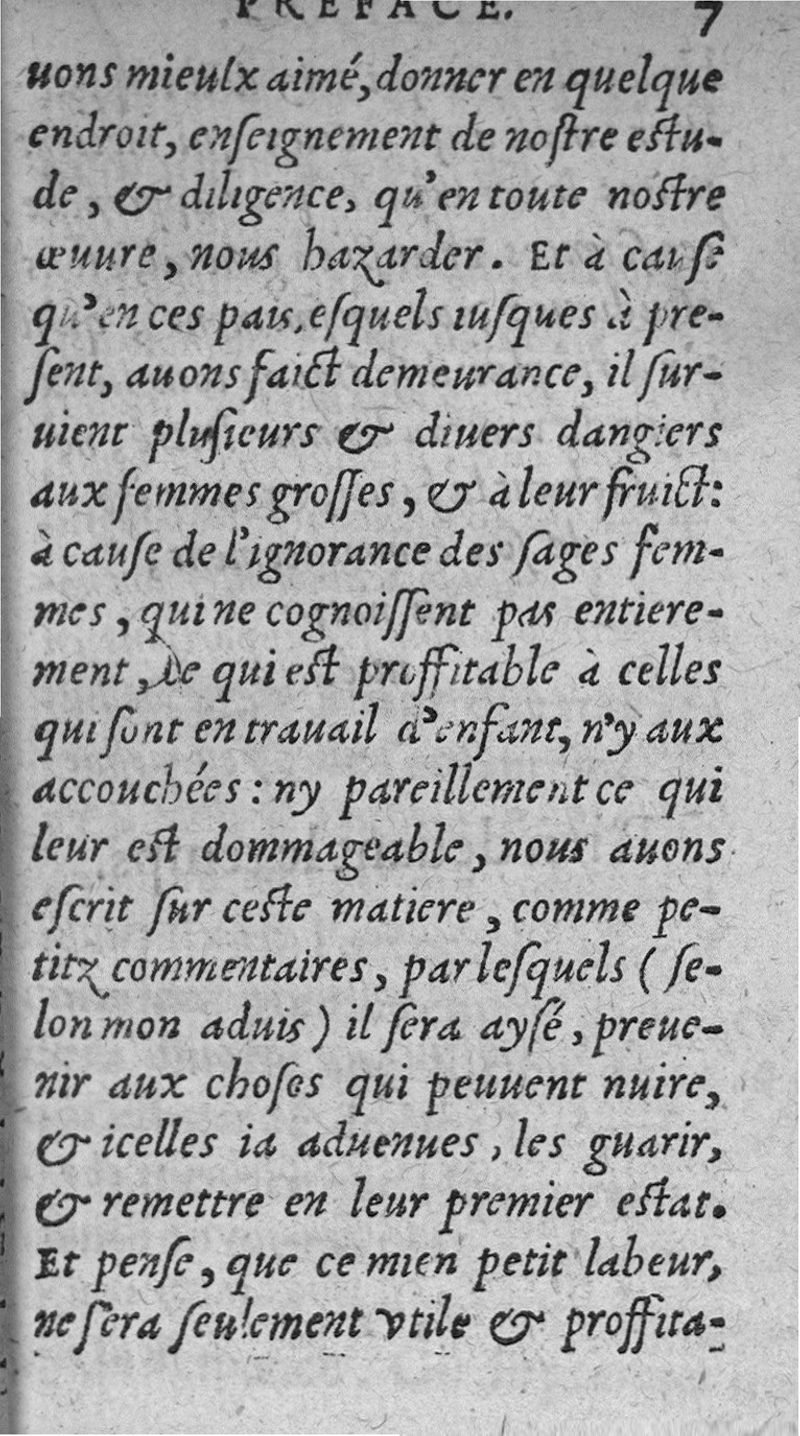 PREFACE. 7
uons mieulx aimé, donner en quelque
endroit, enſeignement de noſtre eſtu-
de, & diligence, qu'en toute noſtre
œuure, nous hazarder. Et à cauſe
qu'en ces païs, eſquels iuſques à pre-
ſent, auons faict demeurance, il ſur-
uient pluſieurs & diuers dangiers
aux femmes groſſes, & à leur fruict:
à cauſe de l'ignorance des ſages fem-
mes, qui ne cognoiſſent pas entiere-
ment, ce qui eſt proffitable à celles
qui ſont en trauail d'enfant, n'y aux
accouchées: ny pareillement ce qui
leur eſt dommageable, nous auons
eſcrit ſur ceſte matiere, comme pe-
titz commentaires, par leſquels (ſe-
lon mon aduis) il ſera ayſé, preue-
nir aux choſes qui peuuent nuire,
& icelles ia aduenues, les guarir,
& remettre en leur premier eſtat.
Et penſe, que ce mien petit labeur,
ne ſera ſeulement vtile & proffita-